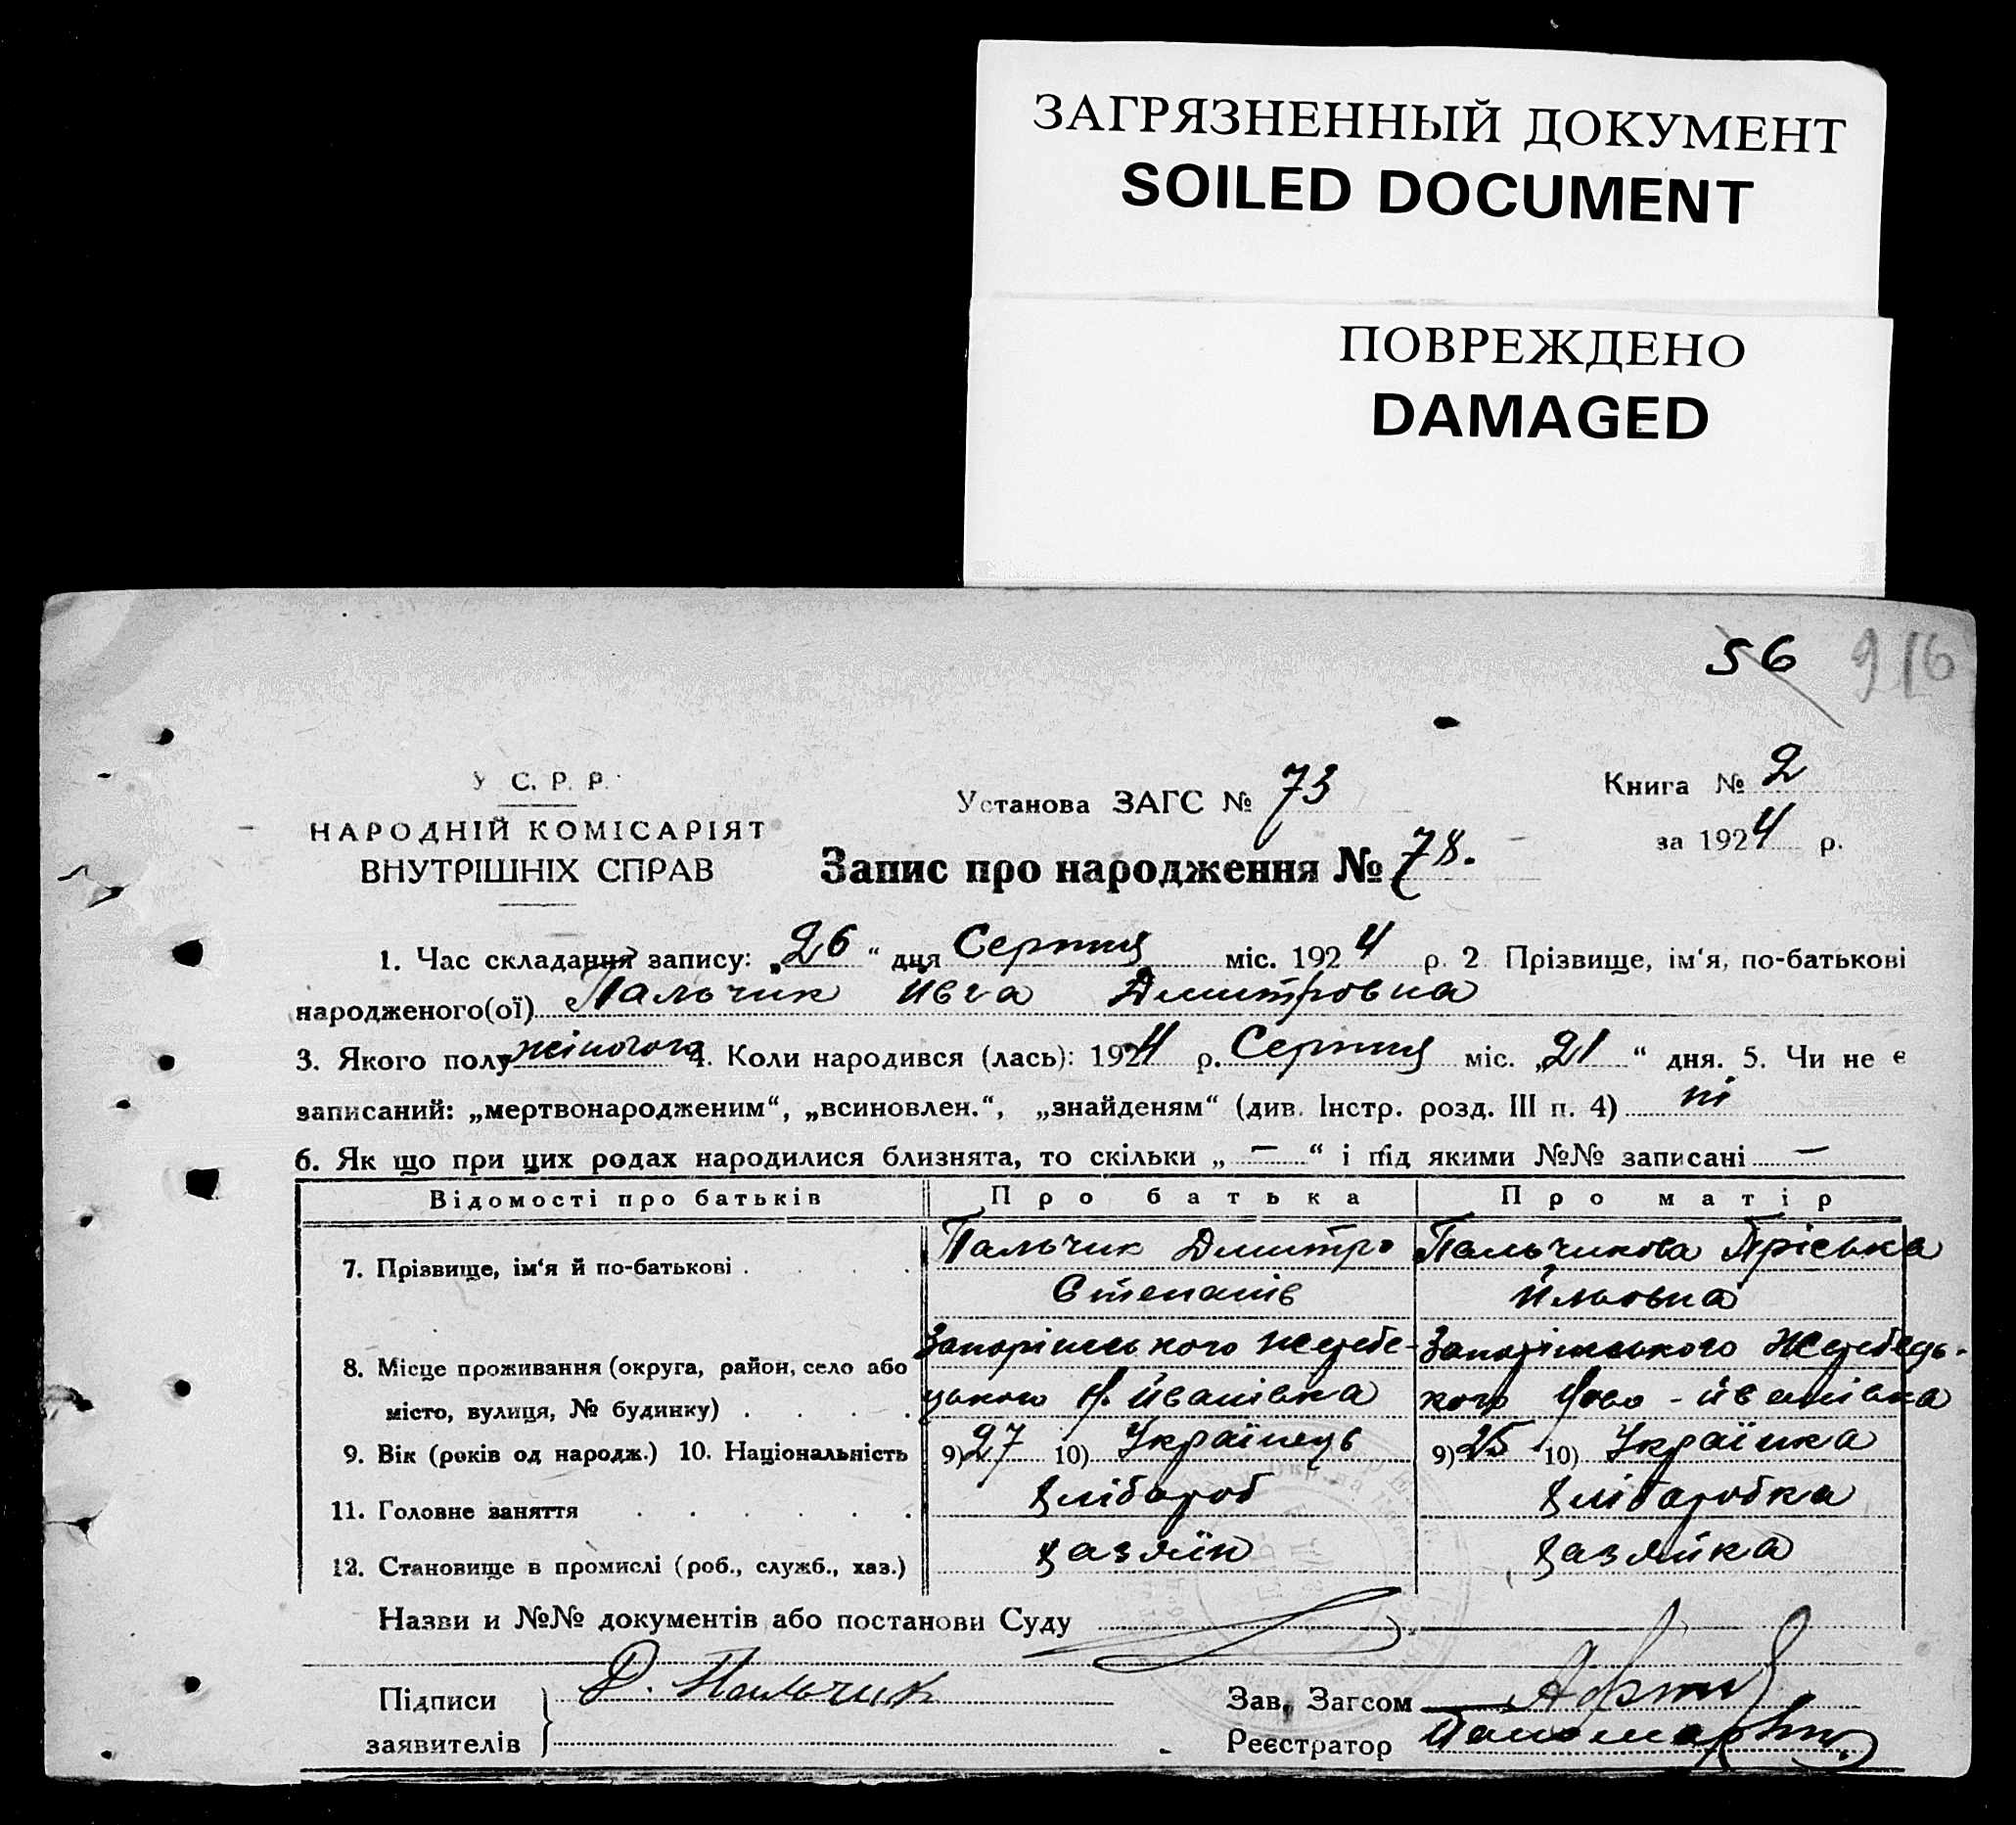 ЗАГРЯЗНЕННЫЙ ДОКУМЕНТ
SOILED DOCUMENT
ПОВРЕЖДЕНО
DAMAGED
56 916
У С. Р. Р.
НАРОДНІЙ КОМІСАРІЯТ
ВНУТРІШНІХ СПРАВ
Установа ЗАГС № 73
Книга № 2
за 1924 р.
Запис про народження № 78.
1. Час складання запису: „26“ дня Серпня міс. 1924 р. 2 Прізвище, ім‘я, по-батькові
народженого(ої) Пальчик Ивга Дмитровна
3. Якого полу жіночого 4. Коли народився (лась): 1924 р. Серпня міс. „21“ дня. 5. Чи не є
записаний: „мертвонародженим“, „всиновлен.“, „знайденям“ (див. Інстр. розд. III п. 4) ні
6. Як що при цих родах народилися близнята, то скільки „ — “ і під якими №№ записані —
Відомості про батьків Про батька Про матір
7. Прізвище, ім‘я й по-батькові . . . . Пальчик Дмитро Пальчикова Пріська
Степанів Ильовна
8. Місце проживання (округа, район, село або Запоріжського Жеребе- Запоріжського Жеребець-
місто, вулиця, № будинку) . . . . цького Н. Иванівка кого Ново-Иванівка
9. Вік (років од народж.) 10. Національність 9) 27 10) Українець 9) 25 10) Українка
11. Головне заняття . . . . . . Хлібороб Хліборобка
12. Становище в промислі (роб., служб., хаз.) Хазяїн Хазяйка
Назви и №№ документів або постанови Суду
Підписи Д. Пальчик Зав. Загсом
заявителів Реєстратор